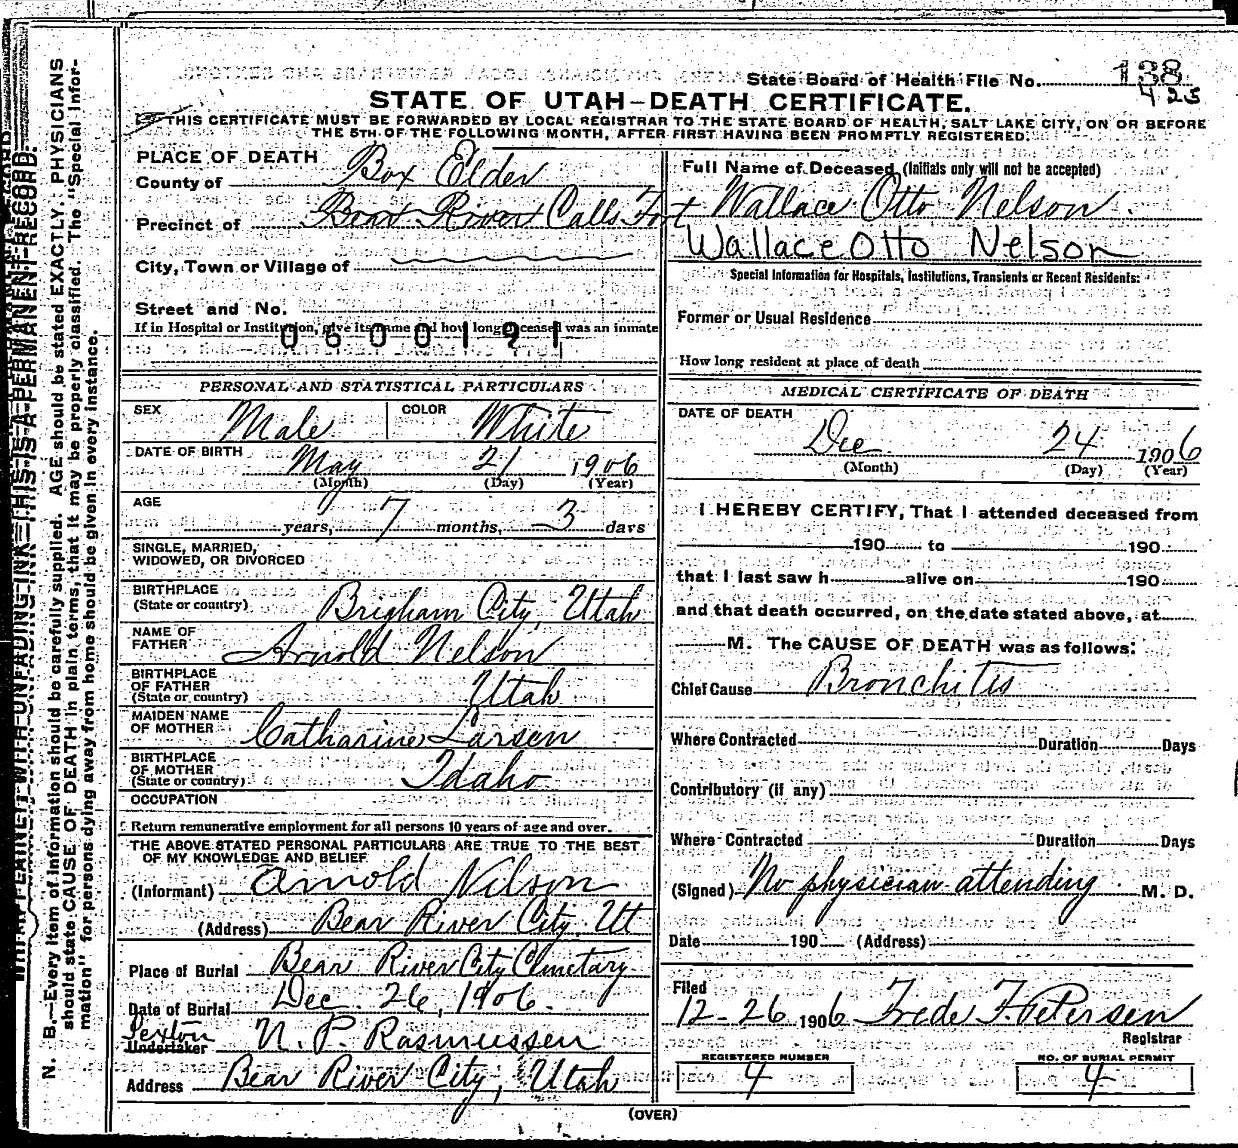 State Board of Health File No. 138
425
STATE OF UTAH—DEATH CERTIFICATE.
THIS CERTIFICATE MUST BE FORWARDED BY LOCAL REGISTRAR TO THE STATE BOARD OF HEALTH, SALT LAKE CITY, ON OR BEFORE
THE 5TH OF THE FOLLOWING MONTH, AFTER FIRST HAVING BEEN PROMPTLY REGISTERED.
PLACE OF DEATH
County of Box Elder
Precinct of Bear River Calls Fort
City, Town or Village of
Street and No.
If in Hospital or Institution, give its name and how long deceased was an inmate
0600191
PERSONAL AND STATISTICAL PARTICULARS
SEX Male COLOR White
DATE OF BIRTH May 21 1906
(Month) (Day) (Year)
AGE years, 7 months, 3 days
SINGLE, MARRIED,
WIDOWED, OR DIVORCED
BIRTHPLACE
(State or country) Brigham City, Utah
NAME OF
FATHER Arnold Nelson
BIRTHPLACE
OF FATHER
(State or country) Utah
MAIDEN NAME
OF MOTHER Catharine Larsen
BIRTHPLACE
OF MOTHER
(State or country) Idaho
OCCUPATION
Return remunerative employment for all persons 10 years of age and over.
THE ABOVE STATED PERSONAL PARTICULARS ARE TRUE TO THE BEST
OF MY KNOWLEDGE AND BELIEF
(Informant) Arnold Nilson
(Address) Bear River City, Ut
Place of Burial Bear River City Cemetary
Date of Burial Dec. 26, 1906.
Sexton
Undertaker N. P. Rasmussen
Address Bear River City, Utah
Full Name of Deceased (Initials only will not be accepted)
Wallace Otto Nelson.
Wallace Otto Nelson
Special Information for Hospitals, Institutions, Transients or Recent Residents:
Former or Usual Residence
How long resident at place of death
MEDICAL CERTIFICATE OF DEATH
DATE OF DEATH
Dec 24 1906
(Month) (Day) (Year)
I HEREBY CERTIFY, That I attended deceased from
190 to 190
that I last saw h alive on 190
and that death occurred, on the date stated above, at
M. The CAUSE OF DEATH was as follows:
Chief Cause Bronchitis
Where Contracted Duration Days
Contributory (if any)
Where Contracted Duration Days
(Signed) No physician attending M. D.
Date 190 (Address)
Filed
12-26 1906 Frede F. Petersen
Registrar
REGISTERED NUMBER
4
NO. OF BURIAL PERMIT
4
(OVER)
WRITE PLAINLY WITH UNFADING INK—THIS IS A PERMANENT RECORD.
N. B.—Every item of information should be carefully supplied. AGE should be stated EXACTLY. PHYSICIANS
should state CAUSE OF DEATH in plain terms, that it may be properly classified. The "Special Infor-
mation" for persons dying away from home should be given in every instance.